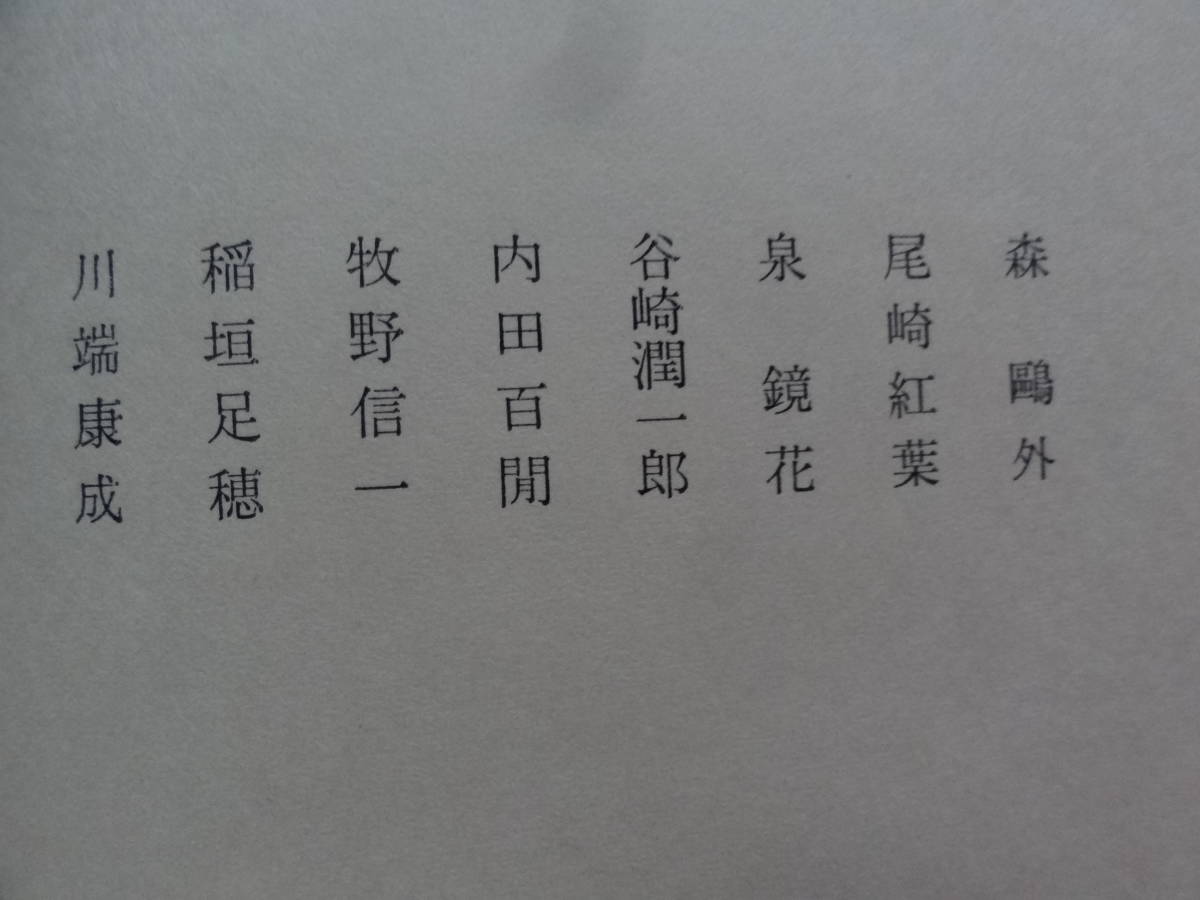 森鷗外
尾崎紅葉
泉鏡花
谷崎潤一郎
内田百閒
牧野信一
稲垣足穂
川端康成